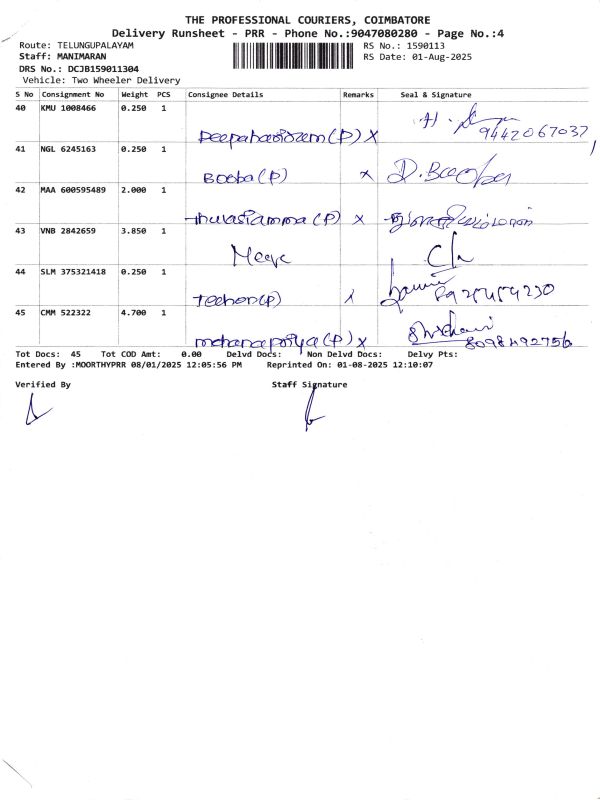 THE PROFESSIONAL COURIERS, COIMBATORE
Delivery Runsheet - PRR - Phone No.:9047080280 - Page No.:4
Route: TELUNGUPALAYAM RS No.: 1590113
Staff: MANIMARAN RS Date: 01-Aug-2025
DRS No.: DCJB159011304
Vehicle: Two Wheeler Delivery
S No Consignment No Weight PCS Consignee Details Remarks Seal & Signature
40 KMU 1008466 0.250 1
(P) X 9442067037
41 NGL 6245163 0.250 1
Booba (P) X D. Booba
42 MAA 600595489 2.000 1
thulasiamma (P) X
43 VNB 2842659 3.850 1
44 SLM 375321418 0.250 1
(P)
45 CMM 522322 4.700 1
mohanapriya (P) X 8098492756
Tot Docs: 45 Tot COD Amt: 0.00 Delvd Docs: Non Delvd Docs: Delvy Pts:
Entered By :MOORTHYPRR 08/01/2025 12:05:56 PM Reprinted On: 01-08-2025 12:10:07
Verified By Staff Signature